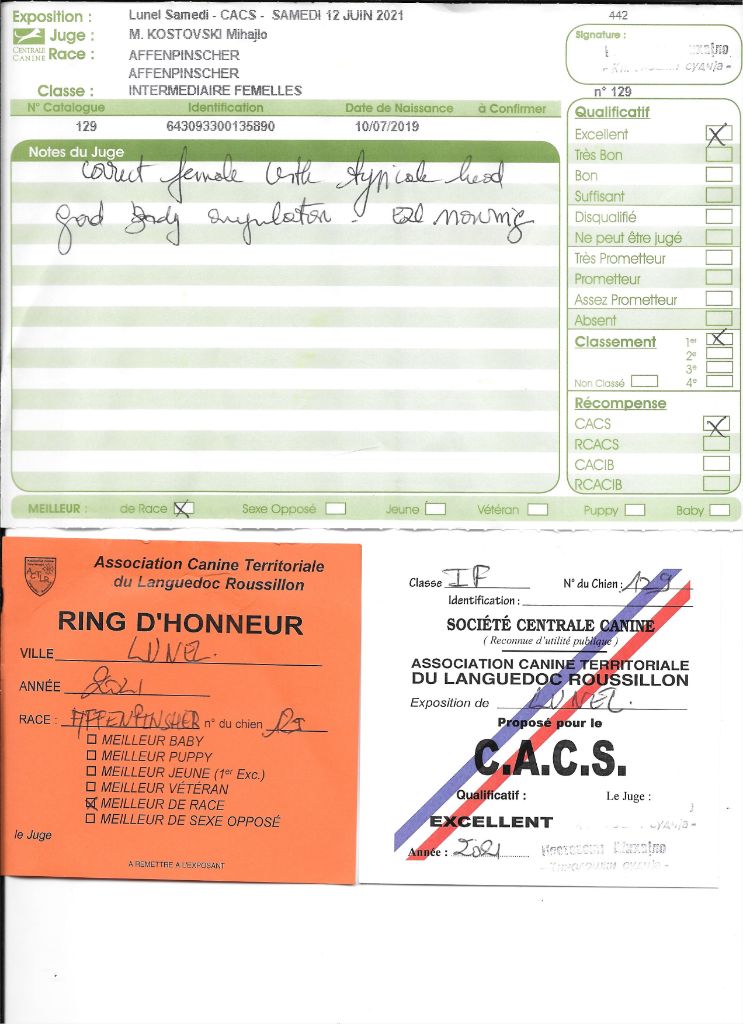 Exposition : Lunel Samedi - CACS - SAMEDI 12 JUIN 2021 442
Juge : M. KOSTOVSKI Mihajlo
CENTRALE CANINE
Race : AFFENPINSCHER
AFFENPINSCHER
Classe : INTERMEDIAIRE FEMELLES
Signature :
n° 129
N° Catalogue Identification Date de Naissance à Confirmer
129 643093300135890 10/07/2019
Notes du Juge
correct female with typicale head
good body angulation -
Qualificatif
Excellent X
Très Bon
Bon
Suffisant
Disqualifié
Ne peut être jugé
Très Prometteur
Prometteur
Assez Prometteur
Absent
Classement 1er X
2e
3e
Non Classé 4e
Récompense
CACS X
RCACS
CACIB
RCACIB
MEILLEUR : de Race X Sexe Opposé Jeune Vétéran Puppy Baby
Association Canine Territoriale
du Languedoc Roussillon
RING D'HONNEUR
VILLE LUNEL
ANNÉE 2021
RACE : AFFENPINSHER n° du chien 129
MEILLEUR BABY
MEILLEUR PUPPY
MEILLEUR JEUNE (1er Exc.)
MEILLEUR VÉTÉRAN
X MEILLEUR DE RACE
MEILLEUR DE SEXE OPPOSÉ
le Juge
A REMETTRE A L'EXPOSANT
Classe IF N° du Chien : 129
Identification :
SOCIÉTÉ CENTRALE CANINE
( Reconnue d'utilité publique )
ASSOCIATION CANINE TERRITORIALE
DU LANGUEDOC ROUSSILLON
Exposition de LUNEL
Proposé pour le
C.A.C.S.
Qualificatif : Le Juge :
EXCELLENT
Année : 2021